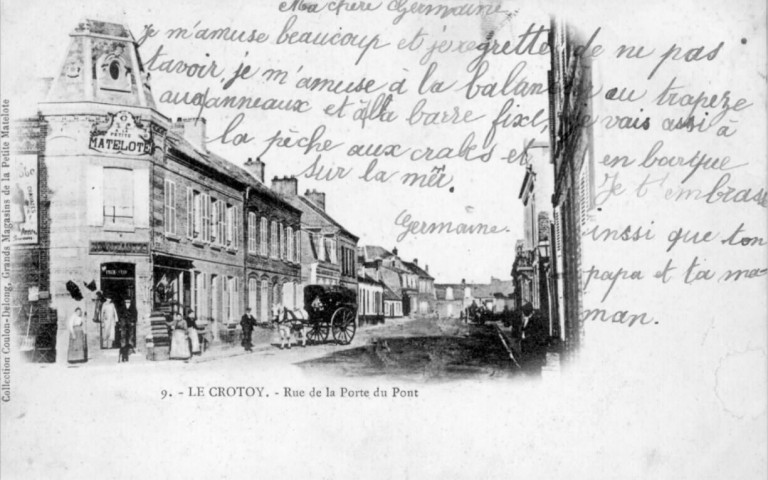 Ma chère Germaine,
Je m'amuse beaucoup et je regrette de ne pas
t'avoir, je m'amuse à la balan au trapèze
aux anneaux et à la barre fixe, je vais assi à
la pêche aux crabs et en barque
sur la mer. Je t'embrasse
Germaine. inssi que ton
papa et ta ma-
man.
A LA
PETITE
MATELOTE
9. - LE CROTOY. - Rue de la Porte du Pont
Collection Coulon-Delong, Grands Magasins de la Petite Matelote